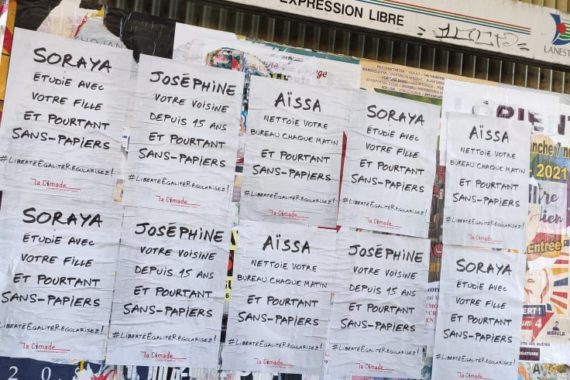 EXPRESSION LIBRE
LANEST
SORAYA
ETUDIE AVEC
VOTRE FILLE
ET POURTANT
SANS-PAPIERS
#LIBERTÉÉGALITÉRÉGULARISEZ!
La Cimade
JOSÉPHINE
VOTRE VOISINE
DEPUIS 15 ANS
ET POURTANT
SANS-PAPIERS
#LIBERTÉÉGALITÉRÉGULARISEZ!
La Cimade
AÏSSA
NETTOIE VOTRE
BUREAU CHAQUE MATIN
ET POURTANT
SANS-PAPIERS
#LIBERTÉÉGALITÉRÉGULARISEZ!
La Cimade
SORAYA
ETUDIE AVEC
VOTRE FILLE
ET POURTANT
SANS-PAPIERS
#LIBERTÉÉGALITÉRÉGULARISEZ!
La Cimade
AÏSSA
NETTOIE VOTRE
BUREAU CHAQUE MATIN
ET POURTANT
SANS-PAPIERS
#LIBERTÉÉGALITÉRÉGULARISEZ!
La Cimade
2021
Entrée
SORAYA
ETUDIE AVEC
VOTRE FILLE
ET POURTANT
SANS-PAPIERS
#LIBERTÉÉGALITÉRÉGULARISEZ!
La Cimade
JOSÉPHINE
VOTRE VOISINE
DEPUIS 15 ANS
ET POURTANT
SANS-PAPIERS
#LIBERTÉÉGALITÉRÉGULARISEZ!
La Cimade
AÏSSA
NETTOIE VOTRE
BUREAU CHAQUE MATIN
ET POURTANT
SANS-PAPIERS
#LIBERTÉÉGALITÉRÉGULARISEZ!
La Cimade
JOSÉPHINE
VOTRE VOISINE
DEPUIS 15 ANS
ET POURTANT
SANS-PAPIERS
#LIBERTÉÉGALITÉRÉGULARISEZ!
La Cimade
SORAYA
ETUDIE AVEC
VOTRE FILLE
ET POURTANT
SANS-PAPIERS
#LIBERTÉÉGALITÉRÉGULARISEZ!
La Cimade